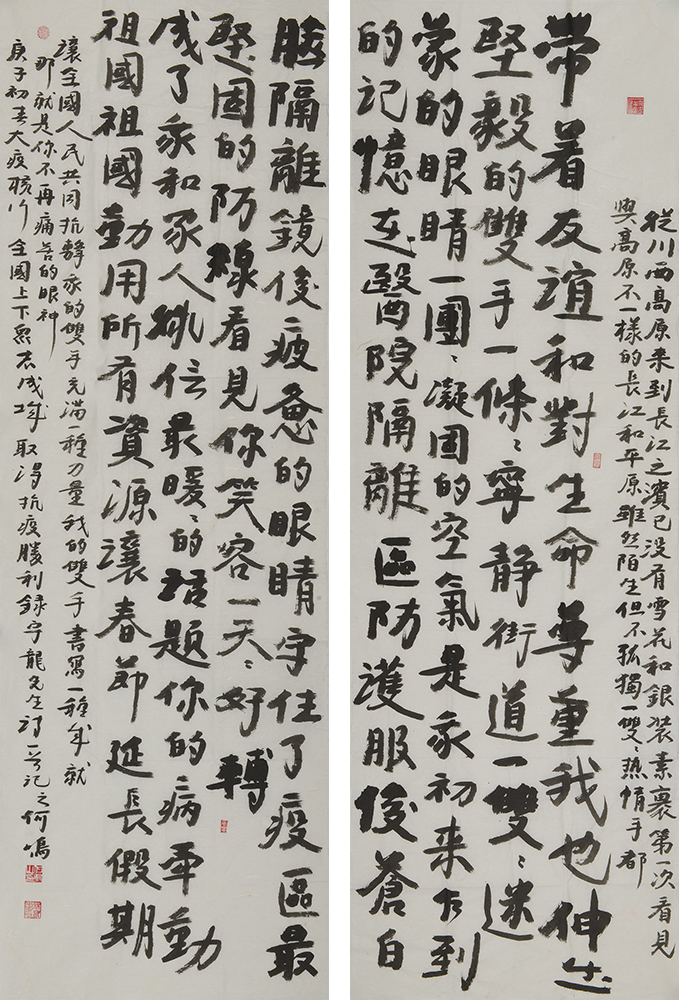 從川西高原来到長江之濱已没有雪花和銀装素裹第一次看見
與高原不一樣的長江和平原雖然陌生但不孤獨一雙〻热情手都
带着友谊和對生命尊重我也伸出
堅毅的雙手一條〻寧静街道一雙〻迷
蒙的眼睛一團〻凝固的空氣是我初来乍到
的记憶在醫院隔離區防護服後蒼白
臉隔離鏡後疲惫的眼睛守住了疫區最
堅固的防線看見你笑容一天〻好轉
成了我和家人微信最暖〻的话題你的病牵動
祖國祖國動用所有資源讓春節延長假期
讓全國人民共同抗静我的雙手充满一種力量我的雙手書寫一種成就
那就是你不再痛苦的眼神
庚子初春大疫横行全國上下眾志成城取得抗疫勝利錄宇龍先生詩一首記之何鳴